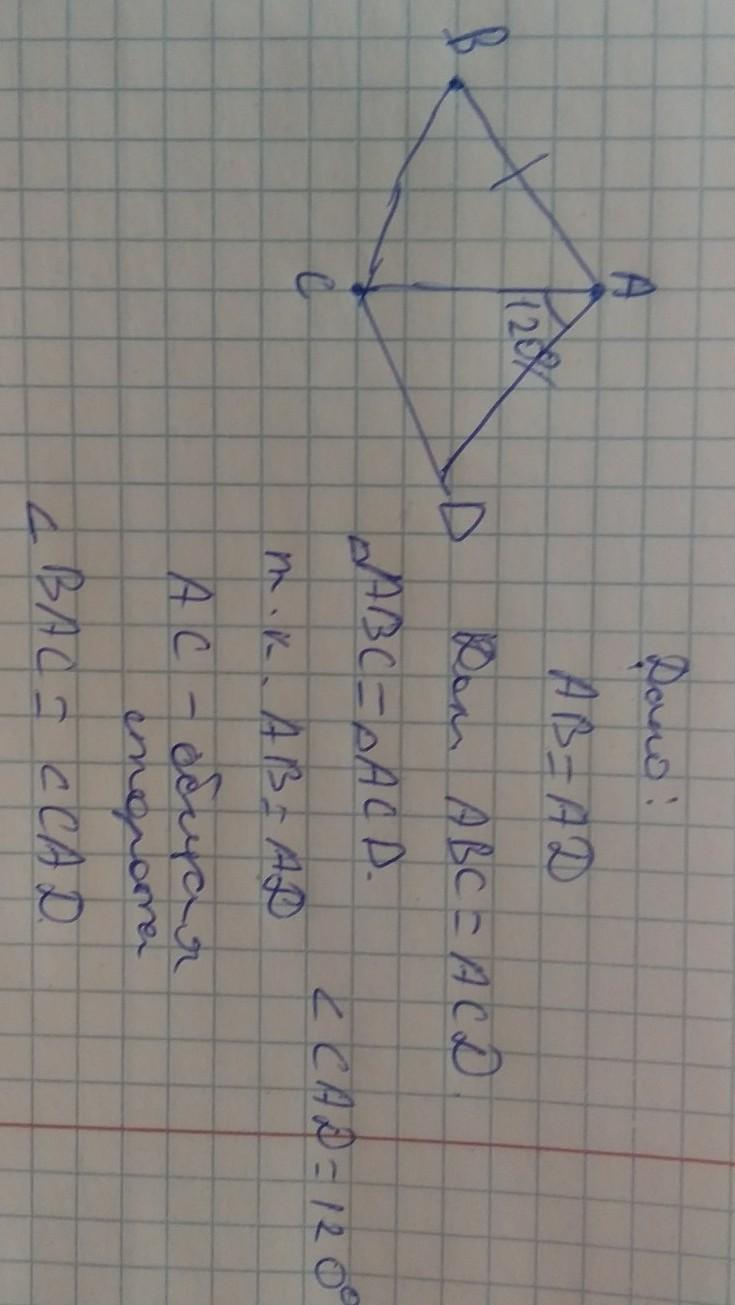 B
A
C
120°
D
Дано:
AB = AD
Док ABC = ACD.
△ABC = △ACD.
т.к. AB = AD
AC - общая
сторона
∠BAC = ∠CAD.
∠CAD = 120°